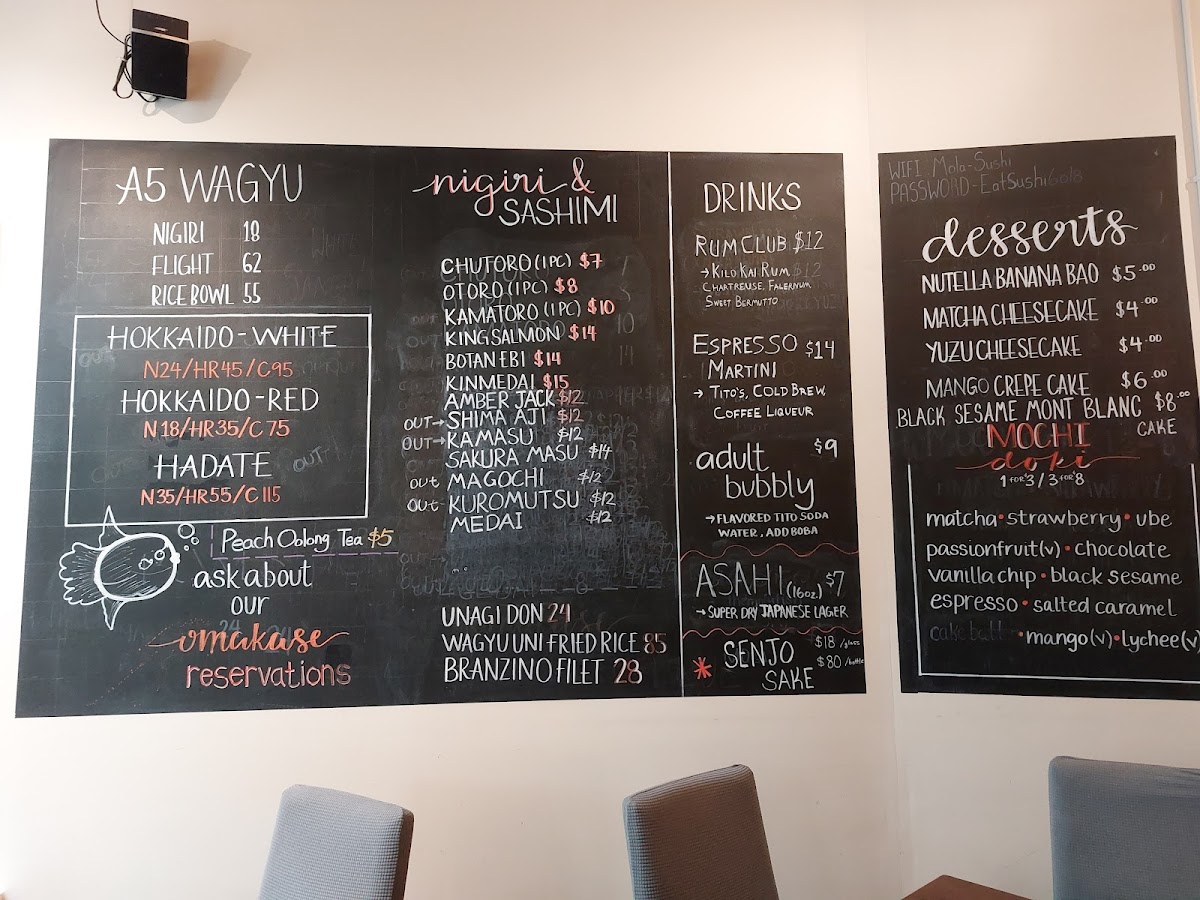 A5 WAGYU
NIGIRI 18
FLIGHT 62
RICE BOWL 55
HOKKAIDO-WHITE
N24/HR45/C95
HOKKAIDO-RED
N18/HR35/C75
HADATE
N35/HR55/C115
Peach Oolong Tea $5
ask about
our
omakase
reservations
nigiri &
SASHIMI
CHUTORO (1PC) $7
OTORO (1PC) $8
KAMATORO (1PC) $10
KING SALMON $14
BOTAN EBI $14
KINMEDAI $15
AMBER JACK $12
OUT→ SHIMA AJI $12
OUT→ KAMASU $12
SAKURA MASU $14
OUT MAGOCHI $12
OUT- KUROMUTSU $12
MEDAI $12
UNAGI DON 24
WAGYU UNI FRIED RICE 85
BRANZINO FILET 28
DRINKS
RUM CLUB $12
→ KILO KAI RUM
CHARTREUSE, FALERNUM
SWEET BERMUTTO
ESPRESSO $14
MARTINI
→ TITO'S, COLD BREW,
COFFEE LIQUEUR
adult $9
bubbly
→ FLAVORED TITO SODA
WATER, ADD BOBA
ASAHI (16oz.) $7
→ SUPER DRY JAPANESE LAGER
* SENJO $18 /glass
SAKE $80 /bottle
WIFI Mola-Sushi
PASSWORD-EatSushi
desserts
NUTELLA BANANA BAO $5.00
MATCHA CHEESECAKE $4.00
YUZU CHEESECAKE $4.00
MANGO CREPE CAKE $6.00
BLACK SESAME MONT BLANC $8.00
CAKE
MOCHI
doki
1 FOR $3 / 3 FOR $8
matcha • strawberry • ube
passionfruit(v) • chocolate
vanilla chip • black sesame
espresso • salted caramel
• mango(v) • lychee(v)